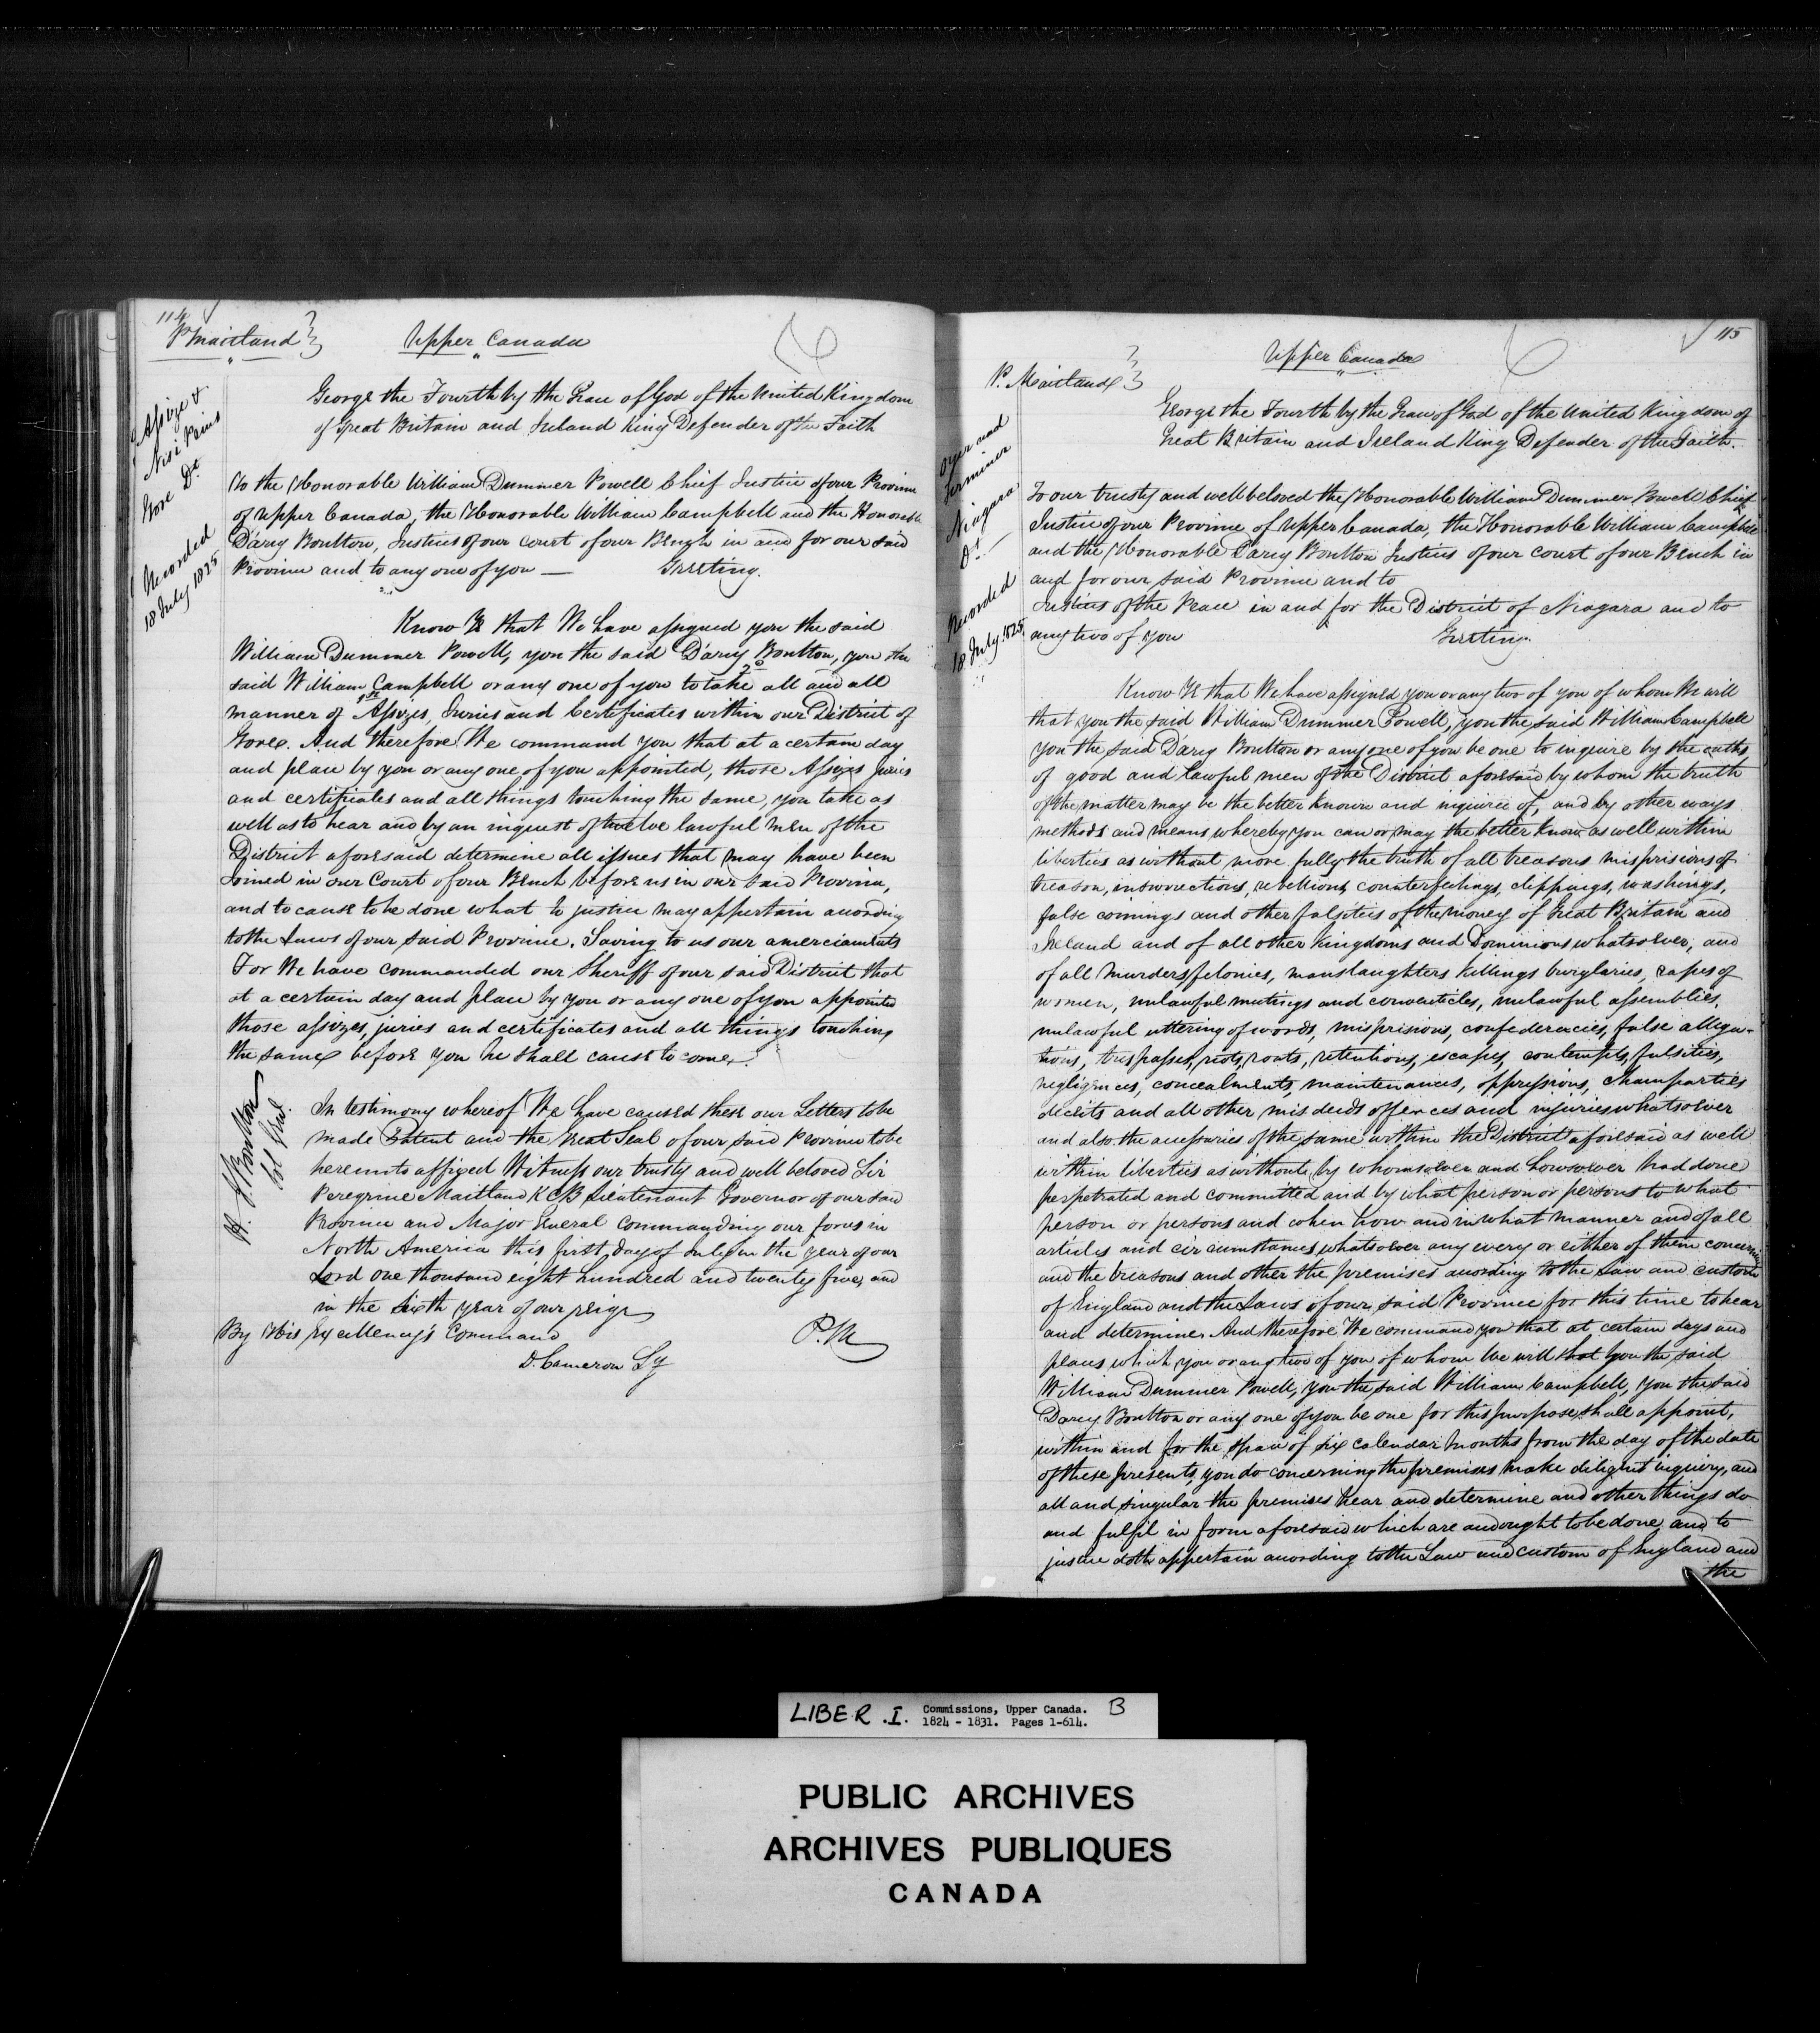 114
P Maitland
Upper Canada
Assize &
Nisi Prius
Gore Dt
Recorded
18 July 1825
George the Fourth by the Grace of God of the United Kingdom
of Great Britain and Ireland King Defender of the Faith
To the Honorable William Dummer Powell Chief Justice of our Province
of Upper Canada, the Honorable William Campbell and the Honorable
D'arcy Boulton, Justices of our Court of our Bench in and for our said
Province and to any one of you — Greeting.
Know Ye that We have assigned you the said
William Dummer Powell, you the said D'arcy Boulton, you the
said William Campbell or any one of you to take all and all
manner of Assizes, Juries and Certificates within our District of
Gore. And therefore We command you that at a certain day
and place by you or any one of you appointed, those Assizes juries
and certificates and all things touching the same, you take as
well as to hear and by an inquest of twelve lawful men of the
District aforesaid determine all issues that may have been
Joined in our Court of our Bench before us in our said Province,
and to cause to be done what to justice may appertain according
to the Laws of our said Province. Saving to us our amerciaments
For We have commanded our Sheriff of our said District that
at a certain day and place by you or any one of you appointed
those assizes, juries and certificates and all things touching
the same before you he shall cause to come.
In testimony whereof We have caused these our Letters to be
made Patent and the Great Seal of our said Province to be
hereunto affixed Witness our trusty and well beloved Sir
Peregrine Maitland K C B Lieutenant Governor of our said
Province and Major General Commanding our forces in
North America this first day of July in the year of our
Lord one thousand eight hundred and twenty five, and
in the sixth year of our reign
H. J. Boulton
Sol Genl.
By His Excellency's Command
P. M
D. Cameron Sy
115
Upper Canada
P. Maitland
Oyer and
Terminer
Niagara
Dt.
Recorded
18 July 1825
George the Fourth by the Grace of God of the United Kingdom of
Great Britain and Ireland King Defender of the Faith.
To our trusty and well beloved the Honorable William Dummer Powell Chief
Justice of our Province of Upper Canada, the Honorable William Campbell
and the Honorable Darcy Boulton Justices of our Court of our Bench in
and for our said Province and to
Justices of the Peace in and for the District of Niagara and to
any two of you Greeting.
Know Ye that We have assigned you or any two of you of whom We will
that you the said William Dummer Powell, you the said William Campbell
you the said Darcy Boulton or any one of you be one to inquire by the oaths
of good and lawful men of the District aforesaid by whom the truth
of the matter may be the better known and inquired of, and by other ways
methods and means whereby you can or may the better know as well within
liberties as without more fully the truth of all treasons misprisions of
treason, insurrections, rebellions, counterfeitings, clippings, washings,
false coinings and other falsities of the money of Great Britain and
Ireland and of all other Kingdoms and Dominions whatsoever, and
of all Murders, felonies, manslaughters killings burglaries, rapes of
women, unlawful meetings and conventicles, unlawful assemblies,
unlawful uttering of words, misprisions, confederacies, false allega-
tions, trespasses, riots, routs, retentions, escapes, contempts, falsities,
negligences, concealments, maintenances, oppressions, champarties
deceits and all other misdeeds offences and injuries whatsoever
and also the accessaries of the same within the District aforesaid as well
within liberties as without, by whomsoever and howsoever had done
perpetrated and committed and by what person or persons to what
person or persons and when how and in what manner and of all
articles and circumstances whatsoever any every or either of them concerning
and the treasons and other the premises according to the Law and custom
of England and the Laws of our said Province for this time to hear
and determine. And therefore We command you that at certain days and
places which you or any two of you of whom We will that you the said
William Dummer Powell, you the said William Campbell, you the said
Darcy Boulton or any one of you be one for this purpose, shall appoint,
within and for the space of six Calendar Months from the day of the date
of these presents, you do concerning the premises make diligent inquiry, and
all and singular the premises hear and determine and other things do
and fulfil in form aforesaid which are and ought to be done, and to
justice doth appertain according to the Law and custom of England and
the
LIBER .I. Commissions, Upper Canada. B
1824 - 1831. Pages 1-614.
PUBLIC ARCHIVES
ARCHIVES PUBLIQUES
CANADA